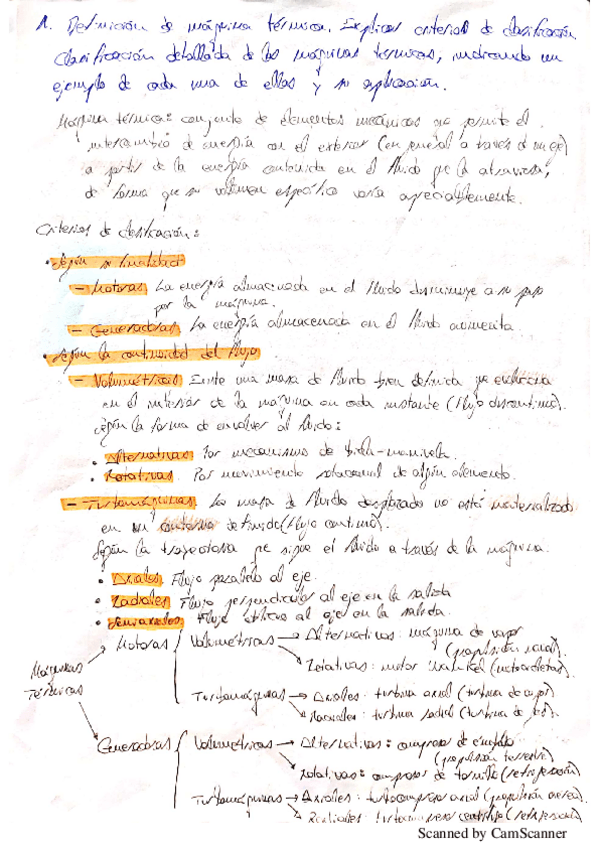 1. Definición de máquina térmica. Explicar criterios de clasificación
Clasificación detallada de las máquinas termicas, indicando un
ejemplo de cada una de ellas y su aplicación.
Máquina térmica: conjunto de elementos mecánicos que permite el
intercambio de energía con el exterior (en general a través d un eje)
a partir de la energía contenida en el fluido que la atraviesa,
de forma que su volumen específico varía apreciablemente.
Criterios de clasificación:
• Según su finalidad
- Motoras La energía almacenada en el fluido disminuye a su paso
por la máquina.
- Generadoras La energía almacenada en el fluido aumenta.
• Según la continuidad del flujo
- Volumétricas Existe una masa de fluido bien definida que evoluciona
en el interior de la máquina en cada instante (flujo discontinuo).
Según la forma de envolver al fluido:
• Alternativas Por mecanismo de biela-manivela.
• Rotativas. Por movimiento rotacional de algún elemento.
- Turbomáquinas La masa de fluido desplazado no está materializada
en un contorno definido (flujo continuo).
Según la trayectoria que sigue el fluido a través de la máquina.
• Axiales Flujo paralelo al eje.
• Radiales Flujo perpendicular al eje en la salida
• Flujo al eje en la salida.
Máquinas Térmicas
Motoras
Volumétricas → Alternativas: máquina de vapor
(propulsión naval).
Rotativas: motor Wankel (motocicletas).
Turbomáquinas → Axiales: turbina axial (turbina de vapor)
Radiales: turbina radial (turbina de gas).
Generadoras
Volumétricas → Alternativas: compresor de émbolo
(propulsión terrestre)
Rotativas: compresor de tornillo (refrigeración)
Turbomáquinas → Axiales: turbocompresor axial (propulsión aérea)
Radiales: turbocompresor centrífugo (refrigeración)
Scanned by CamScanner